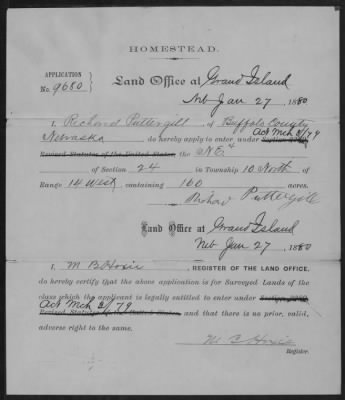 HOMESTEAD.
APPLICATION
No. 9680
Land Office at Grand Island
Neb Jan 27, 1880
I, Richard Puttergill of Buffalo County
Nebraska do hereby apply to enter under Section 2289 Act Mch 3/79
Revised Statutes of the United States the NE 4
of Section 24 in Township 10 North of
Range 14 West, containing 160 acres.
Richard Puttergill
Land Office at Grand Island
Neb Jan 27, 1880
I, M B Hoxie, REGISTER OF THE LAND OFFICE,
do hereby certify that the above application is for Surveyed Lands of the
class which the applicant is legally entitled to enter under
Act Mch 3/79
Revised Statutes of the United States, and that there is no prior, valid,
adverse right to the same.
M B Hoxie
Register.